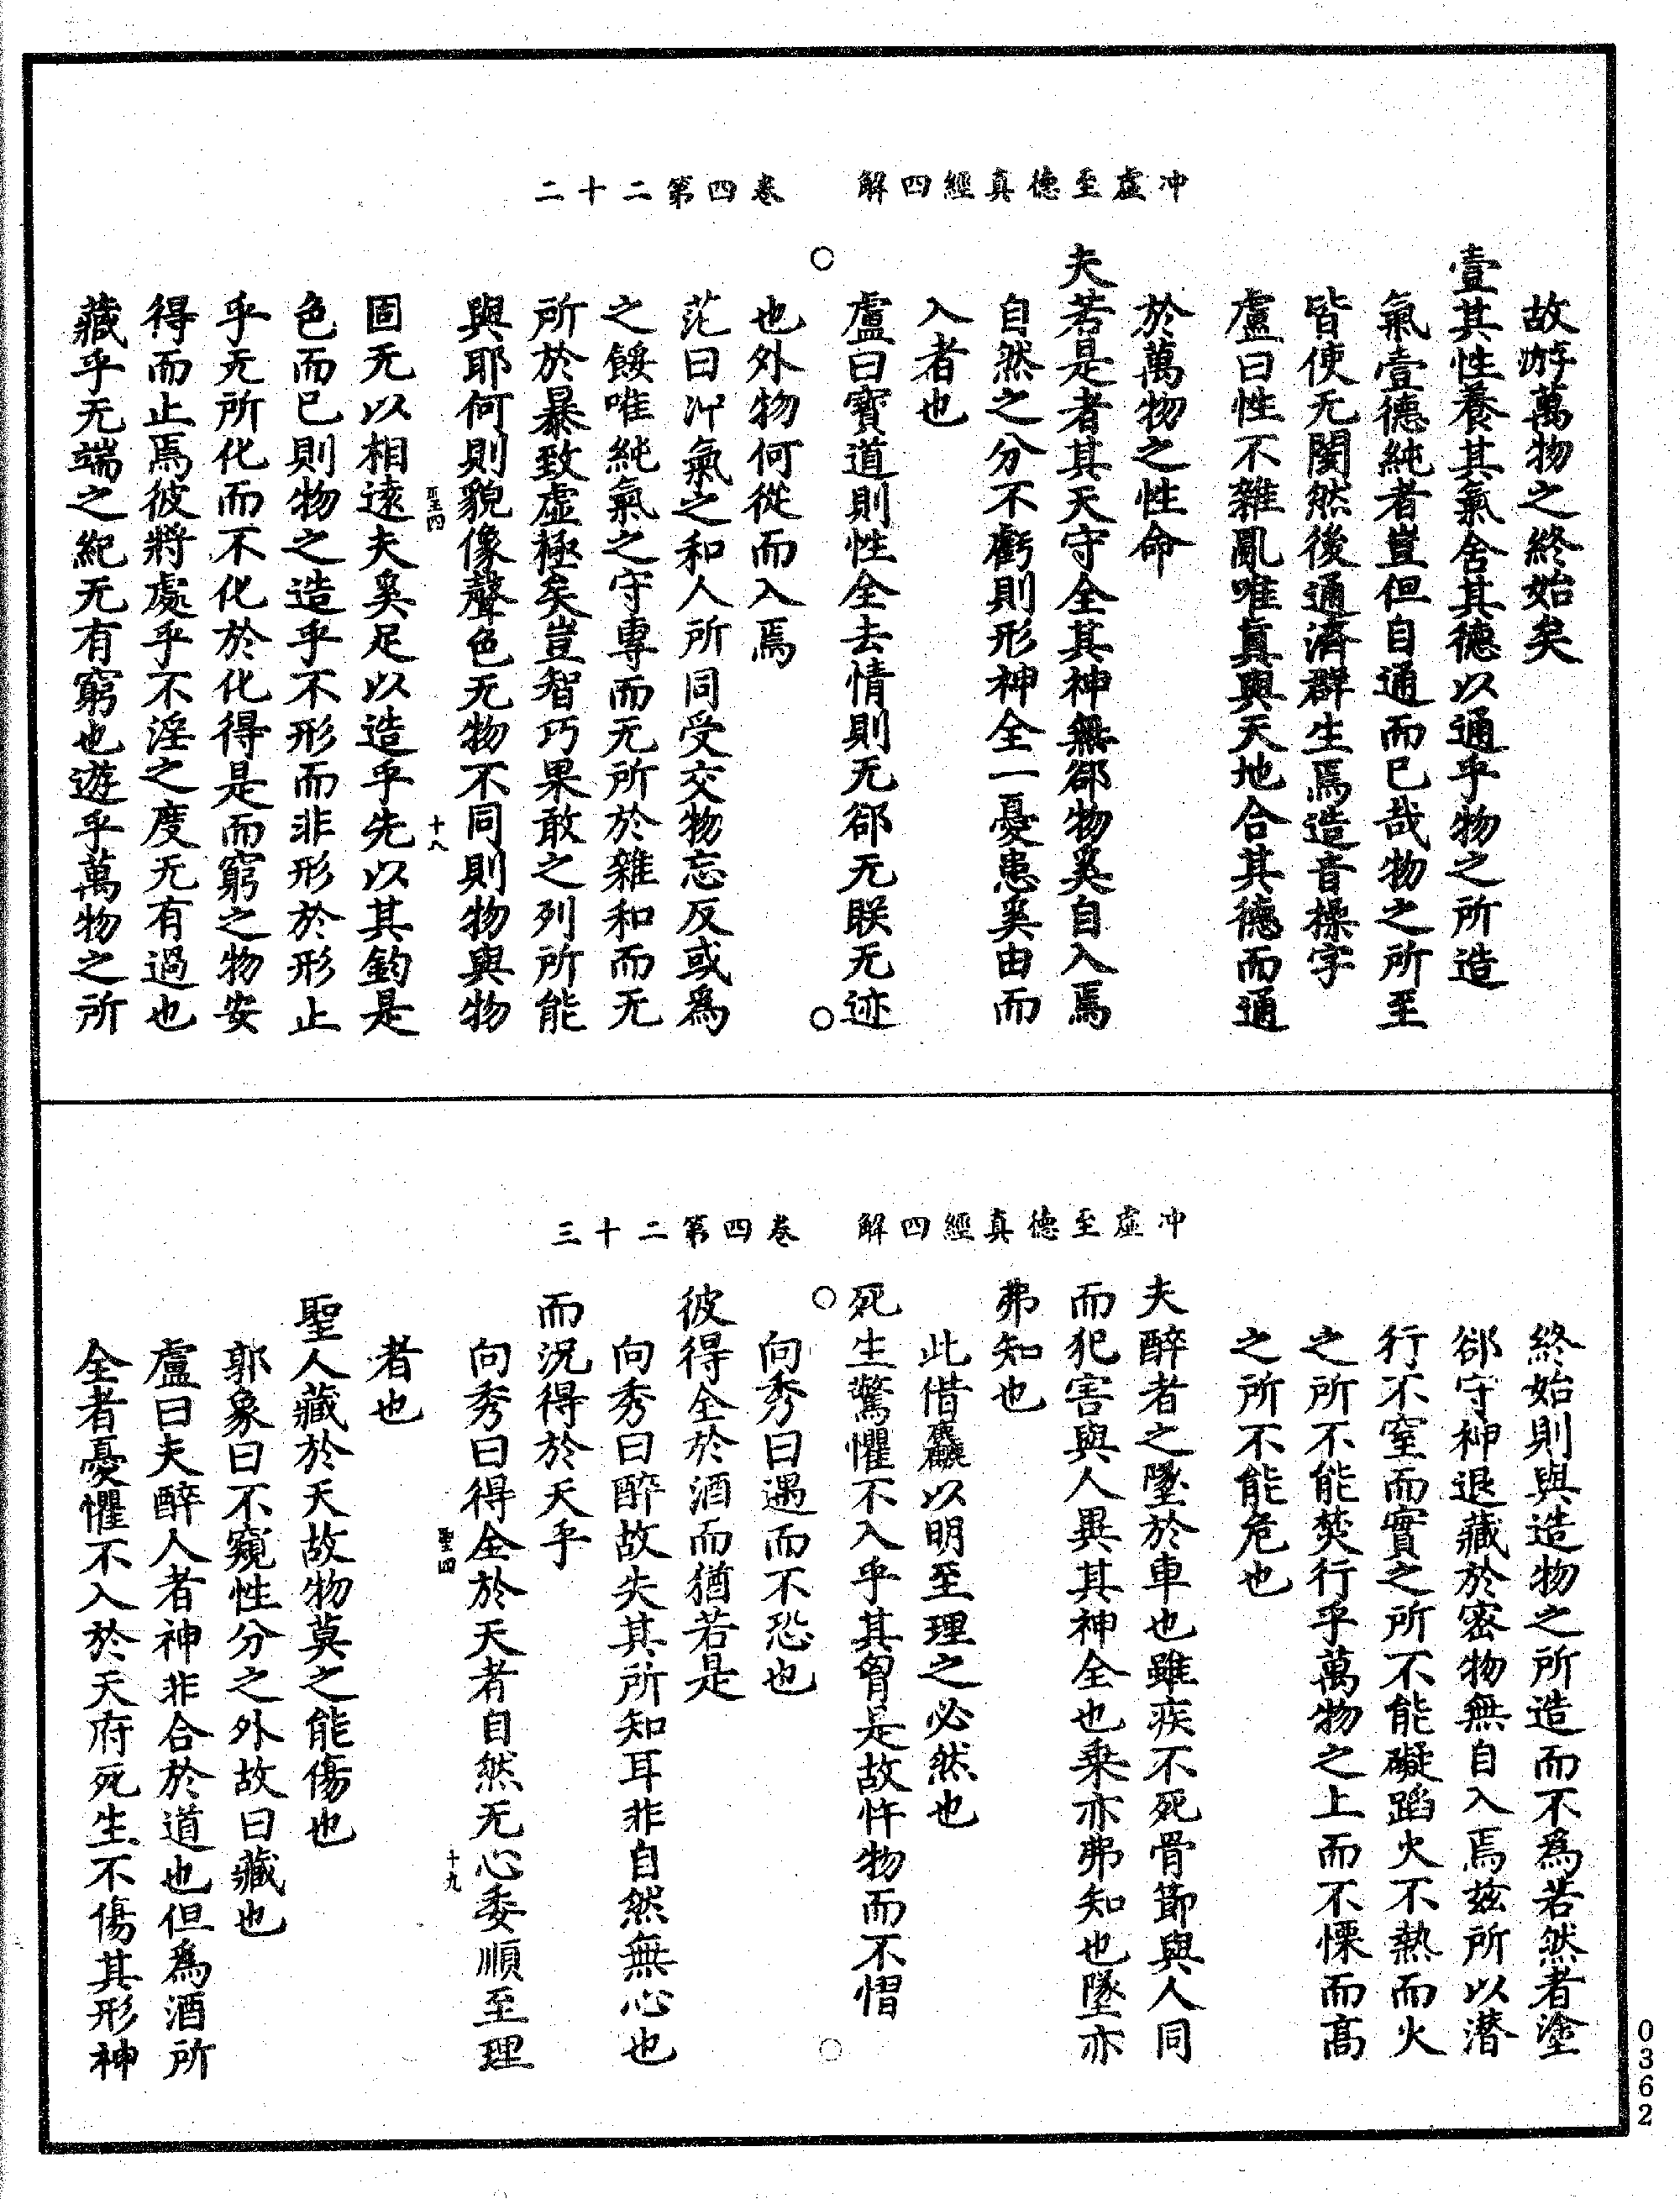 冲虛至德真經四解　卷四第二十二
故游萬物之終始矣
壹其性養其氣舍其德以通乎物之所造
氣壹德純者豈但自通而已哉物之所至
皆使无閡然後通濟群生焉造音操字
盧曰性不雜亂唯真與天地合其德而通
於萬物之性命
夫若是者其天守全其神無郤物奚自入焉
自然之分不虧則形神全一憂患奚由而
入者也
盧曰寶道則性全去情則无郤无眹无迹
也外物何從而入焉
范曰冲氣之和人所同受交物忘反或為
之餒唯純氣之守專而无所於雜和而无
所於暴致虛極矣豈智巧果敢之列所能
與耶何則貌像聲色无物不同則物與物
十八
固无以相逺夫奚足以造乎先以其鈞是
色而已則物之造乎不形而非形於形止
乎无所化而不化於化得是而窮之物安
得而止焉彼將處乎不淫之度无有過也
藏乎无端之紀无有窮也遊乎萬物之所
冲虛至德真經四解　卷四第二十三
終始則與造物之所造而不為若然者塗
郤守神退藏於密物無自入焉茲所以潜
行不窒而實之所不能礙蹈火不熱而火
之所不能焚行乎萬物之上而不慄而高
之所不能危也
夫醉者之墜於車也雖疾不死骨節與人同
而犯害與人異其神全也乗亦弗知也墜亦
弗知也
此借麤以明至理之必然也
死生驚懼不入乎其胷是故忤物而不慴
向秀曰遇而不恐也
彼得全於酒而猶若是
向秀曰醉故失其所知耳非自然無心也
而況得於天乎
向秀曰得全於天者自然无心委順至理
聖四　十九
者也
聖人藏於天故物莫之能傷也
郭象曰不窺性分之外故曰藏也
盧曰夫醉人者神非合於道也但為酒所
全者憂懼不入於天府死生不傷其形神
0362